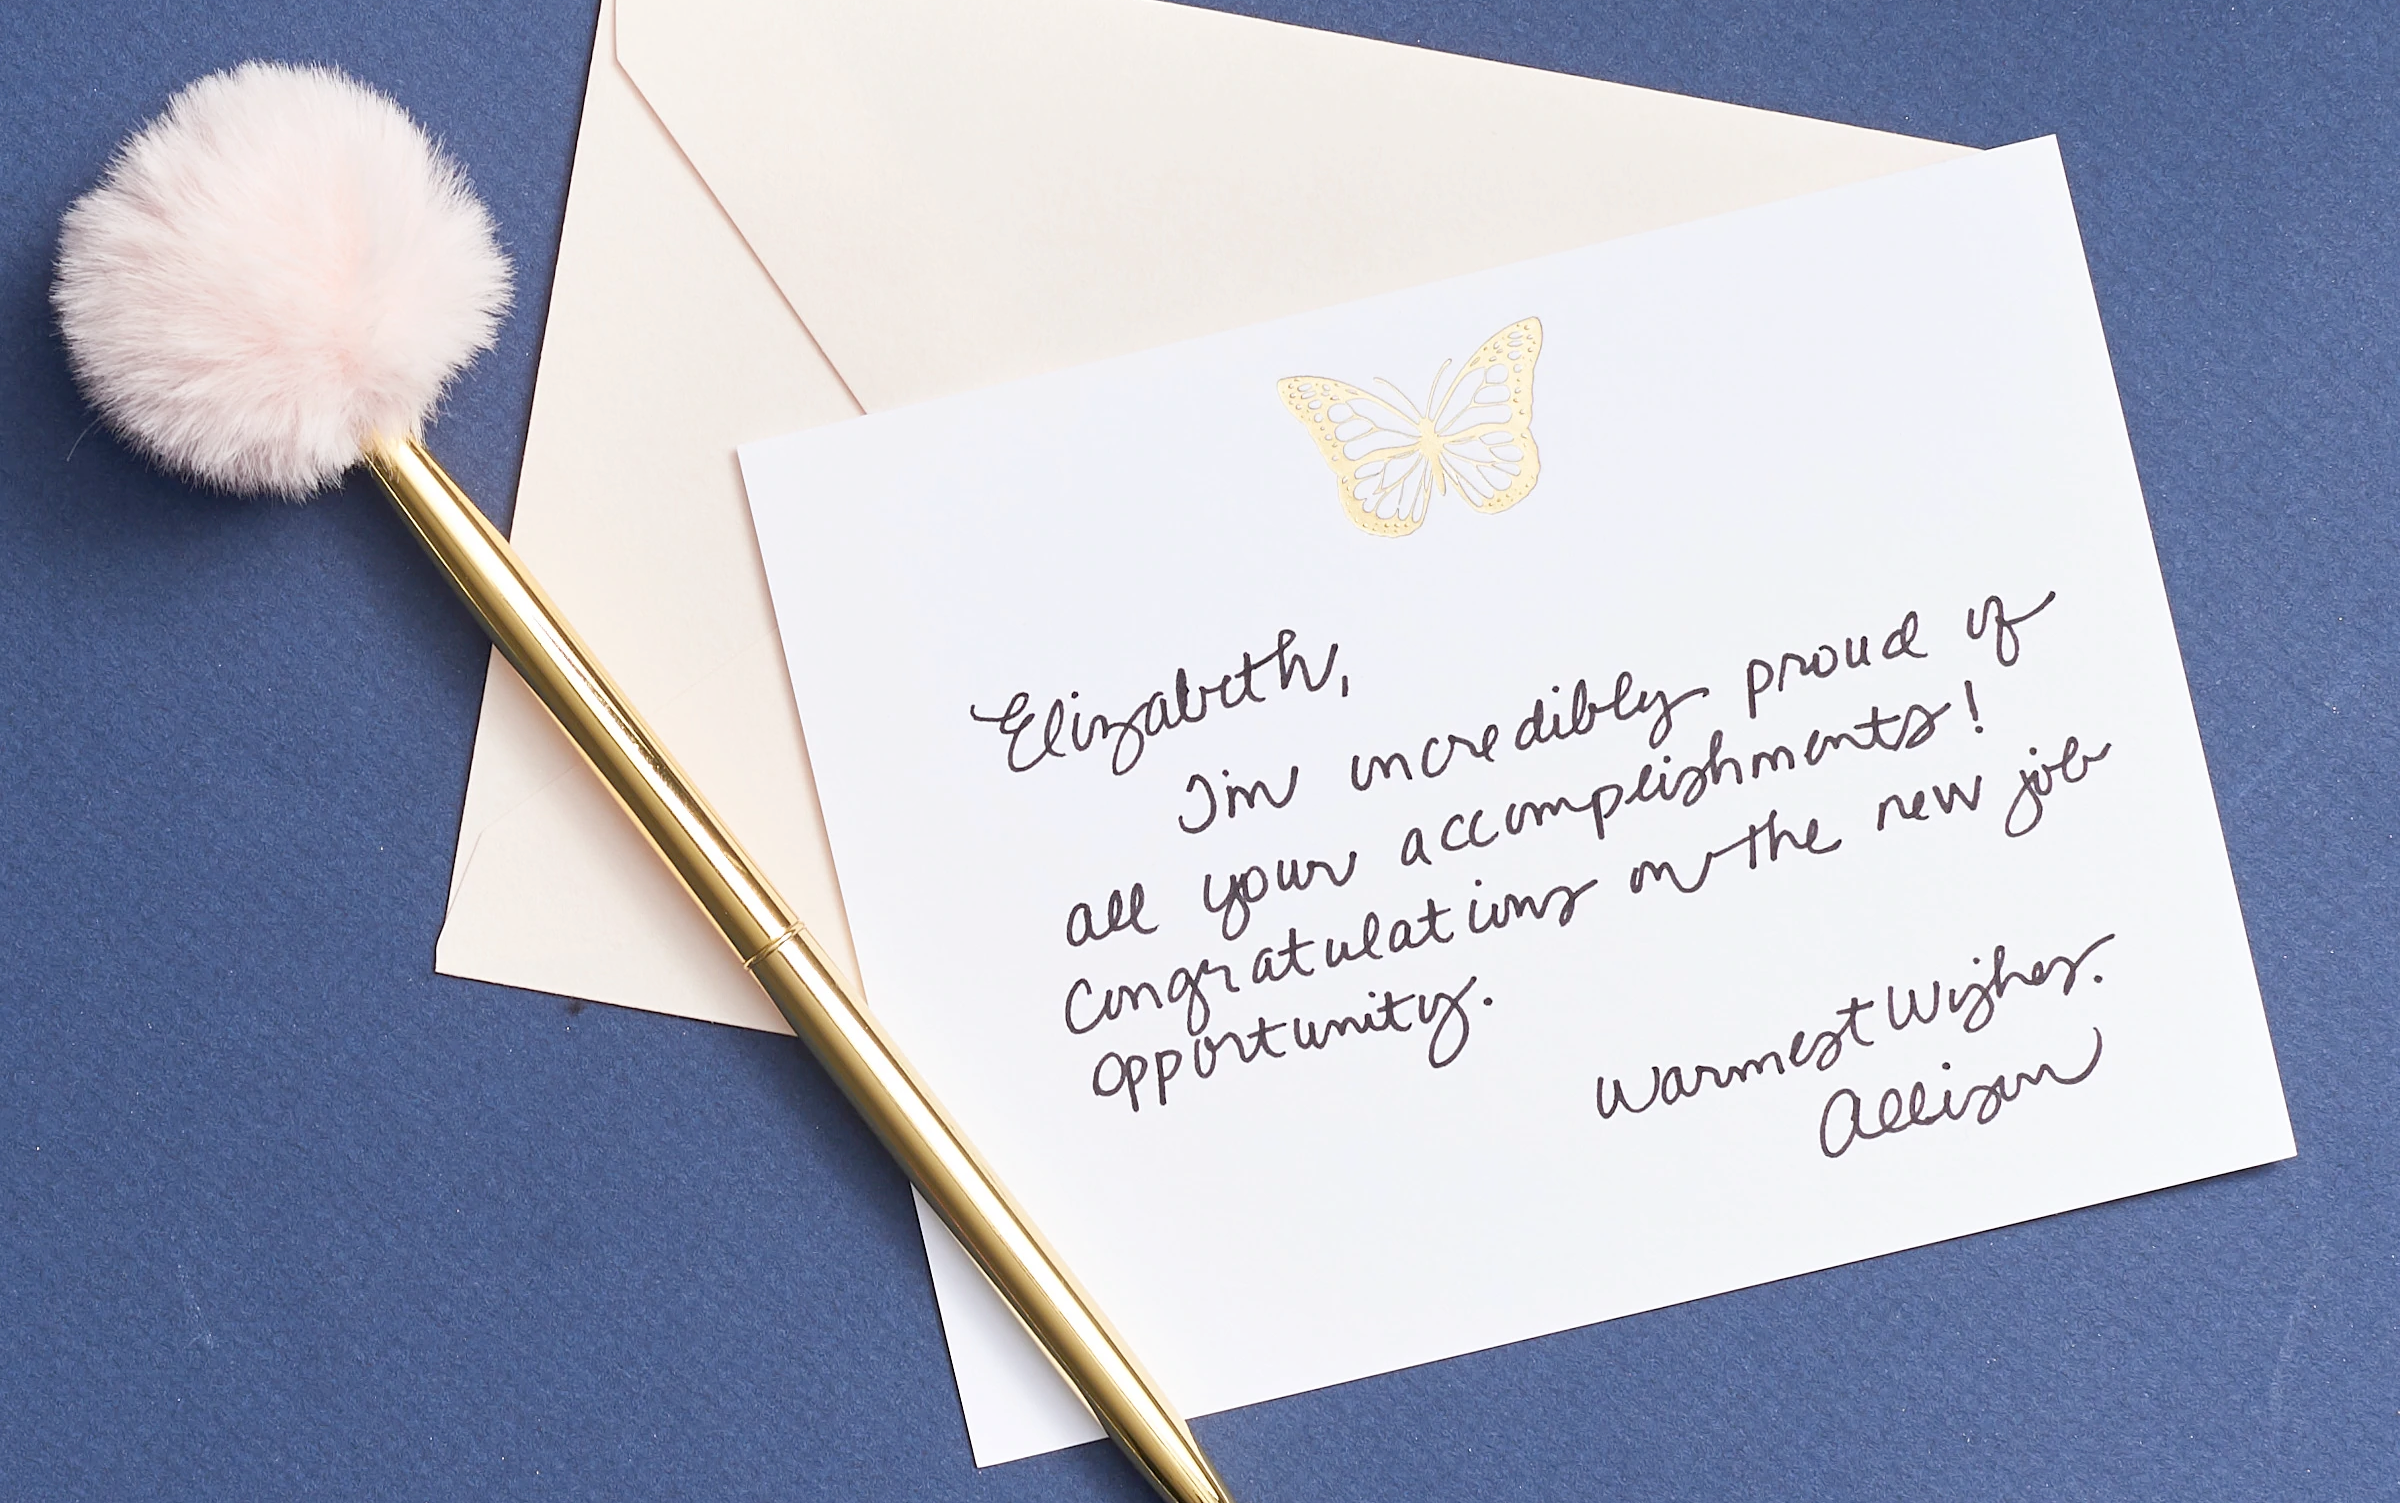 Elizabeth,
I'm incredibly proud of
all your accomplishments!
Congratulations on the new job
opportunity.
Warmest Wishes.
Allison